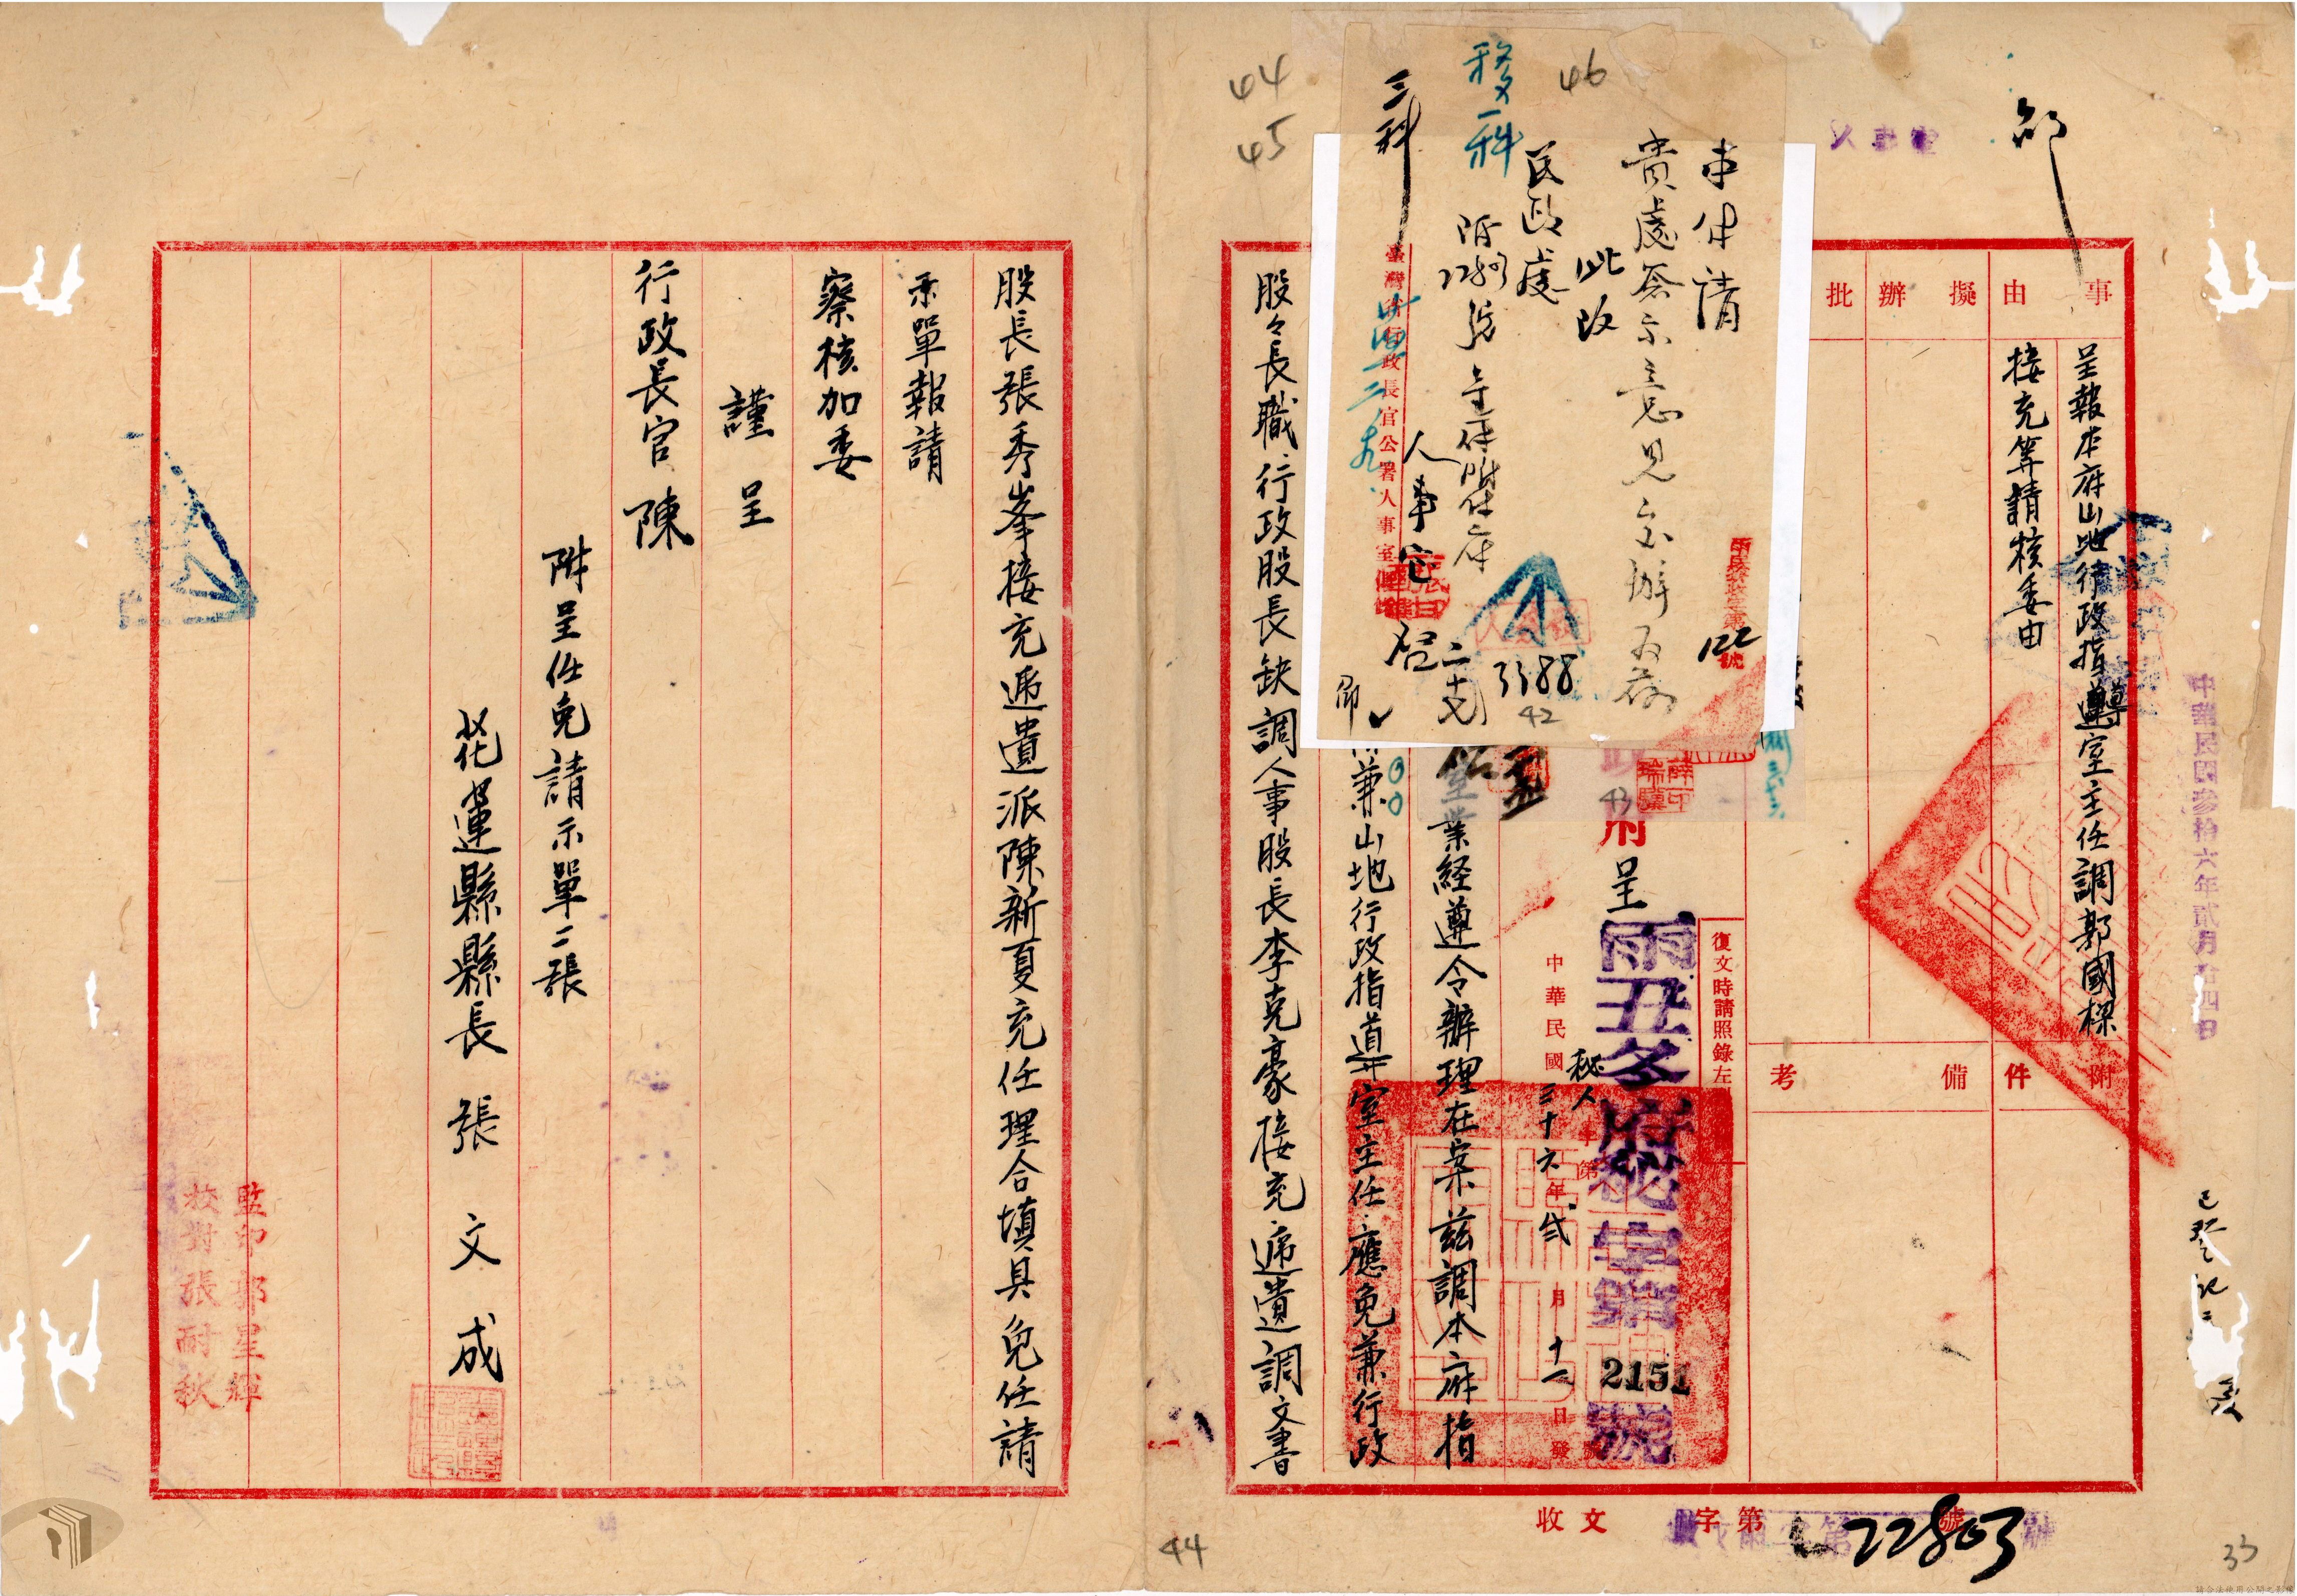 事由
擬辦
批
附件
備考
呈報本府山地行政指導室主任調郭國樑
接充等請核委由
復文時請照錄左
府呈
雨丑冬府秘字第2151號
中華民國三十六年弍月十一日發
秘人字第
業経遵令辦理在案茲調本府指
兼山地行政指導室主任應免兼行政
股々長職行政股長缺調人事股長李克豪接充遞遺調文書
股長張秀峯接充遞遺派陳新夏充任理合填具免任請
示單報請
察核加委
謹呈
行政長官陳
附呈任免請示單二張
花蓮縣縣長張文成
監印郭星輝
校對張耐秋
本件請
貴處簽示意見
此致
民政處
臺灣省行政長官公署人事室
人事室啓
移一科
三科
122
3388
42
43
44
45
46
中華民國參拾六年貳月拾四日
收文 字第 號
22803
44
33